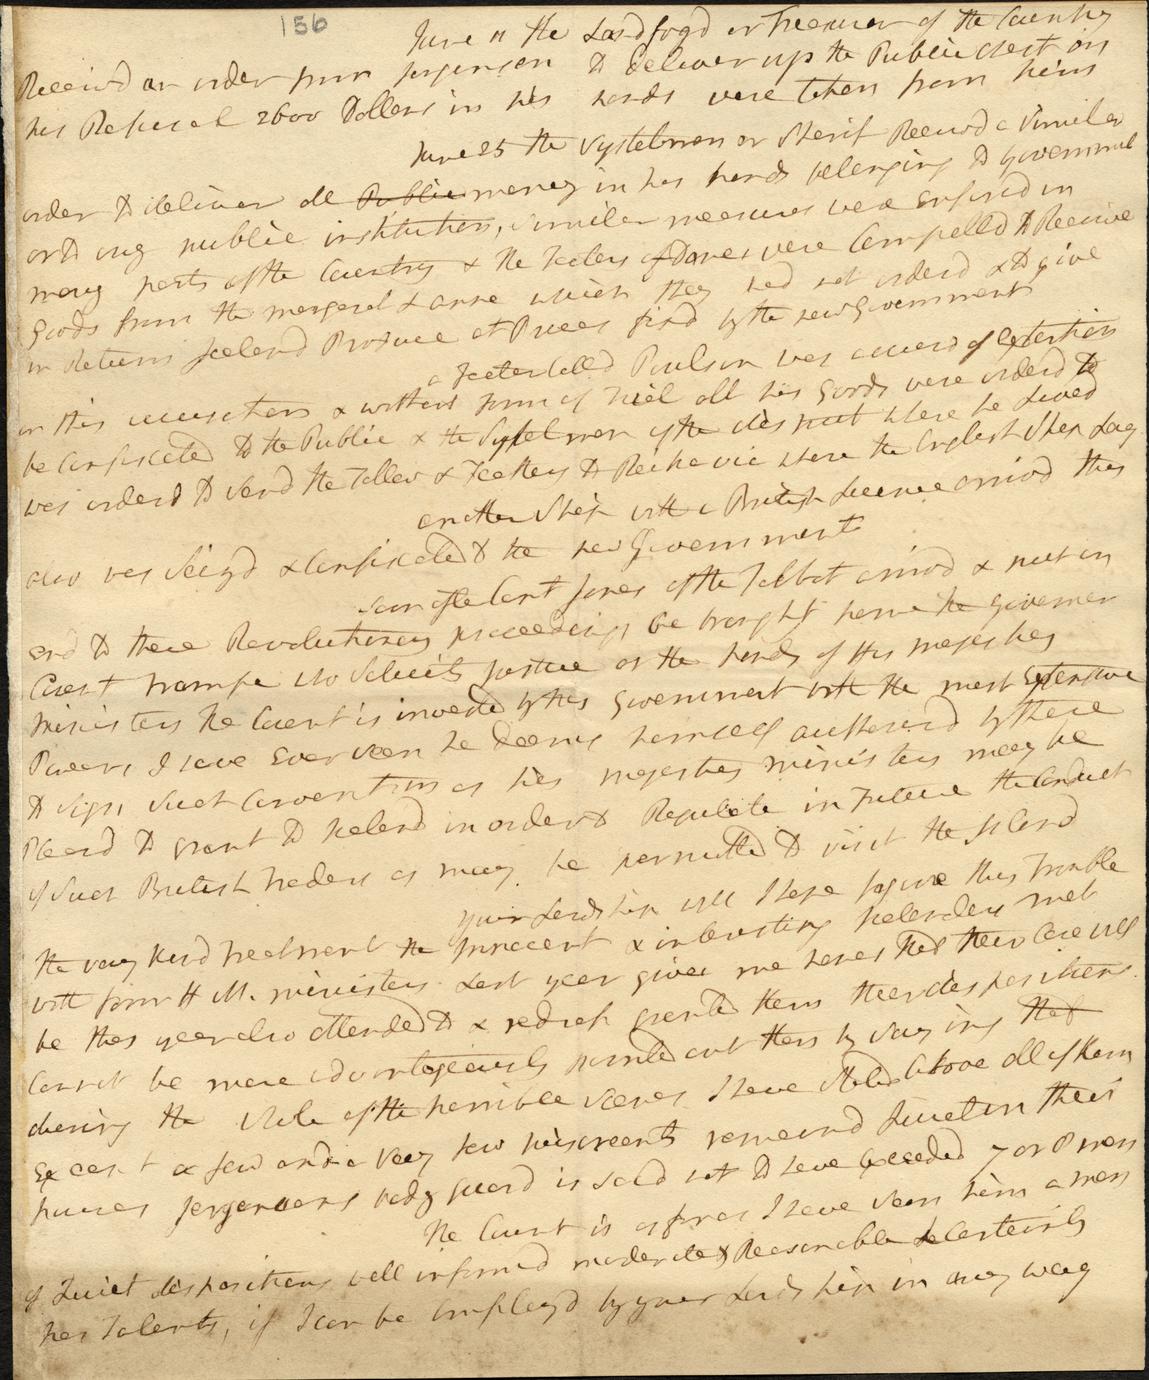 156
June 11 the Landfogd or Treasurer of the Country
Receivd an order from Jorgensen to deliver up the Public chest on
his Refusal 2600 Dollars in his hands were taken from him
June 25 the Systelman or Sherif Receivd a Similar
order to deliver all Public money in his hands belonging to Governmt
or to any public institution, Similar measures were enforcd in
many parts of the Country & the Factors of Danes were Compelld to Receive
Goods from the margaret & anne which they had not orderd & to give
in Return Iceland Produce at Prices fixd by the new Government
a Factor calld Paulson was accusd of Extortion
on this accusation & without form of trial all his Goods were orderd to
be Confiscated to the Public & the Systelman of the district where he Livd
was orderd to Send the Tallow & Feathers to Reikavic where the English Ship Lay
another Ship with a British License arrivd this
also was Seizd & Confiscated to the new Government
soon after Capt Jones of the Talbot arrivd & put an
end to these Revolutionary proceedings he brought home the Governor
Count Trampe who Solicits Justice at the hands of His majesties
ministers The Count is invested by his Government with the most Extensive
Powers I have Ever seen he deems himself authorisd by these
to sign Such Conventions as his majesties ministers may be
Pleasd to grant to Iceland in order to Regulate in Future the Conduct
of Such British traders as may be permitted to visit the Island
your Lordship will I hope forgive this Trouble
the very kind treatment the Innocent & interesting Icelanders met
with from H M. ministers Last year gives me hopes that their Case will
be this year also attended to & redress granted them their dispositions
Cannot be more advantageously pointed out then by saying that
during the whole of the horrible scenes I have stated above all of them
Except a few and a very few miscreants remaind Quiet in their
houses Jorgensens body guard is said not to have Exceeded 7 or 8 men
The Count is as far as I have seen him a man
of Quiet dispositions well informd moderate & Reasonable & Certainly
has Talents, if I can be Employd by your Lordship in any way